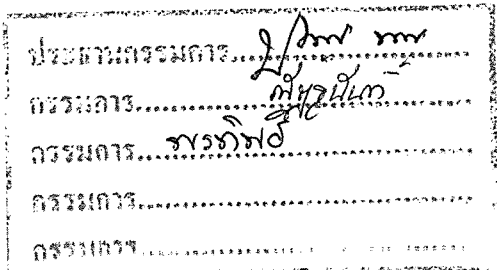 ประธานกรรมการ
กรรมการ
กรรมการ พรทิพย์
กรรมการ
กรรมการ